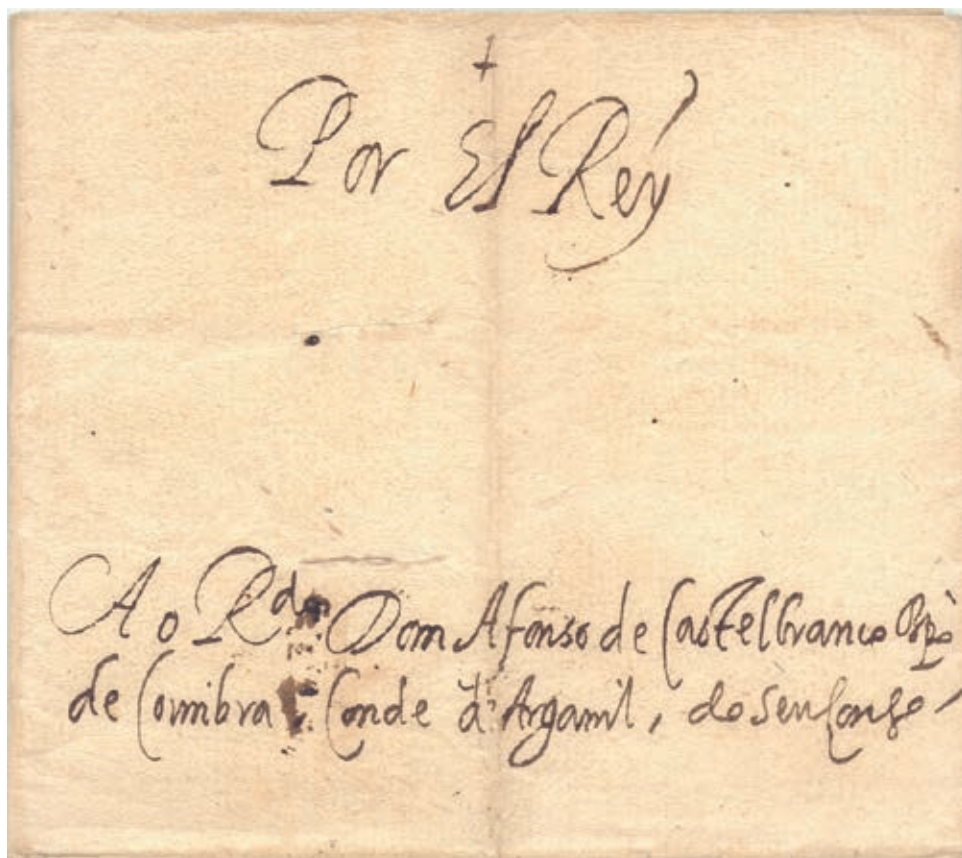 Por El Rey
Ao R.do Dom Afonso de Castelbranco Bpo
de Coimbra, Conde d'Arganil, do seu Conso